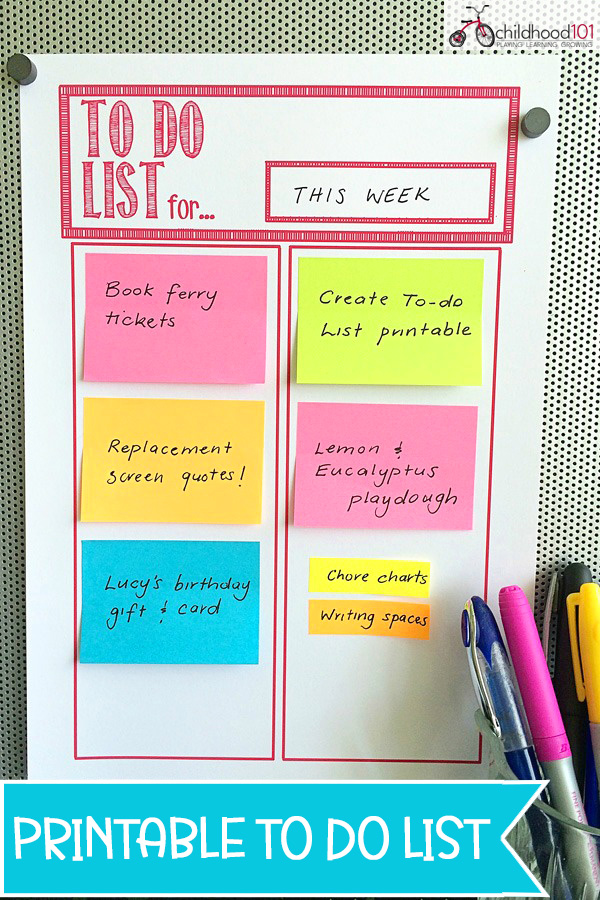 childhood101
PLAYING LEARNING GROWING
TO DO
LIST for...
THIS WEEK
Book ferry
tickets
Replacement
screen quotes!
Lucy's birthday
gift & card
Create To-do
List printable
Lemon &
Eucalyptus
playdough
Chore charts
Writing spaces
PRINTABLE TO DO LIST